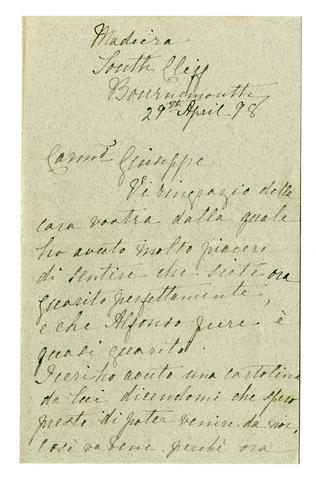 Madeira
South Cliff
Bournemouth
29th April 98
Carmo Giuseppe
Vi ringrazio della
cara vostra dalla quale
ho avuto molto piacere
di sentire che siete ora
guarito perfettamente,
e che Alfonso pure è
quasi guarito.
Ieri ho avuto una cartolina
da lui dicendomi che spera
presto di poter venire da noi,
così va bene perchè ora